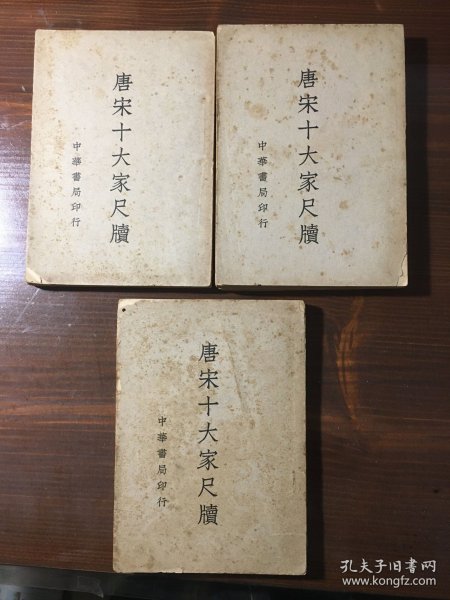 唐宋十大家尺牘
中華書局印行
唐宋十大家尺牘
中華書局印行
唐宋十大家尺牘
中華書局印行
孔夫子旧书网
www.kongfz.com